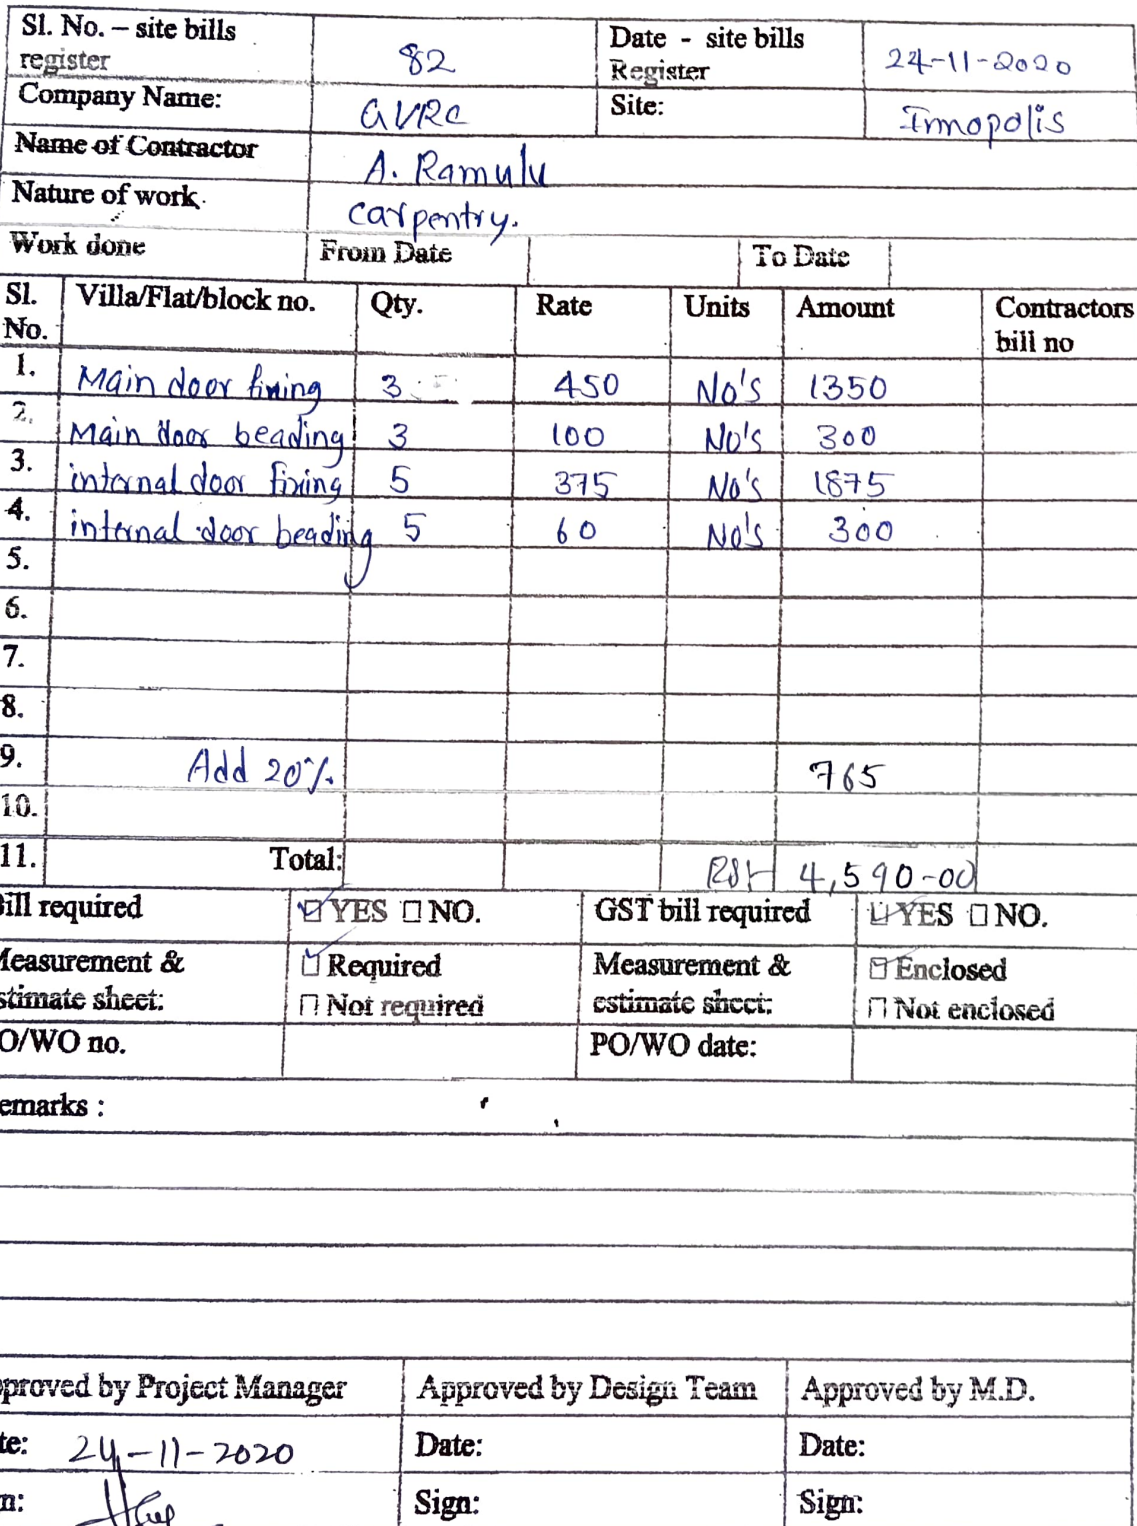 Sl. No. – site bills register 82 Date - site bills Register 24-11-2020
Company Name: GVRC Site: Innopolis
Name of Contractor A. Ramulu
Nature of work. carpentry.
Work done From Date To Date
Sl. No. Villa/Flat/block no. Qty. Rate Units Amount Contractors bill no
1. Main door fixing 3 450 No's 1350
2. Main door beading 3 100 No's 300
3. internal door fixing 5 375 No's 1875
4. internal door beading 5 60 No's 300
5.
6.
7.
8.
9. Add 20% 765
10.
11. Total: 4,590-00
ill required YES NO. GST bill required YES NO.
Measurement & stimate sheet: Required Not required Measurement & estimate sheet: Enclosed Not enclosed
O/WO no. PO/WO date:
emarks :
pproved by Project Manager Approved by Design Team Approved by M.D.
te: 24-11-2020 Date: Date:
n: Sign: Sign: